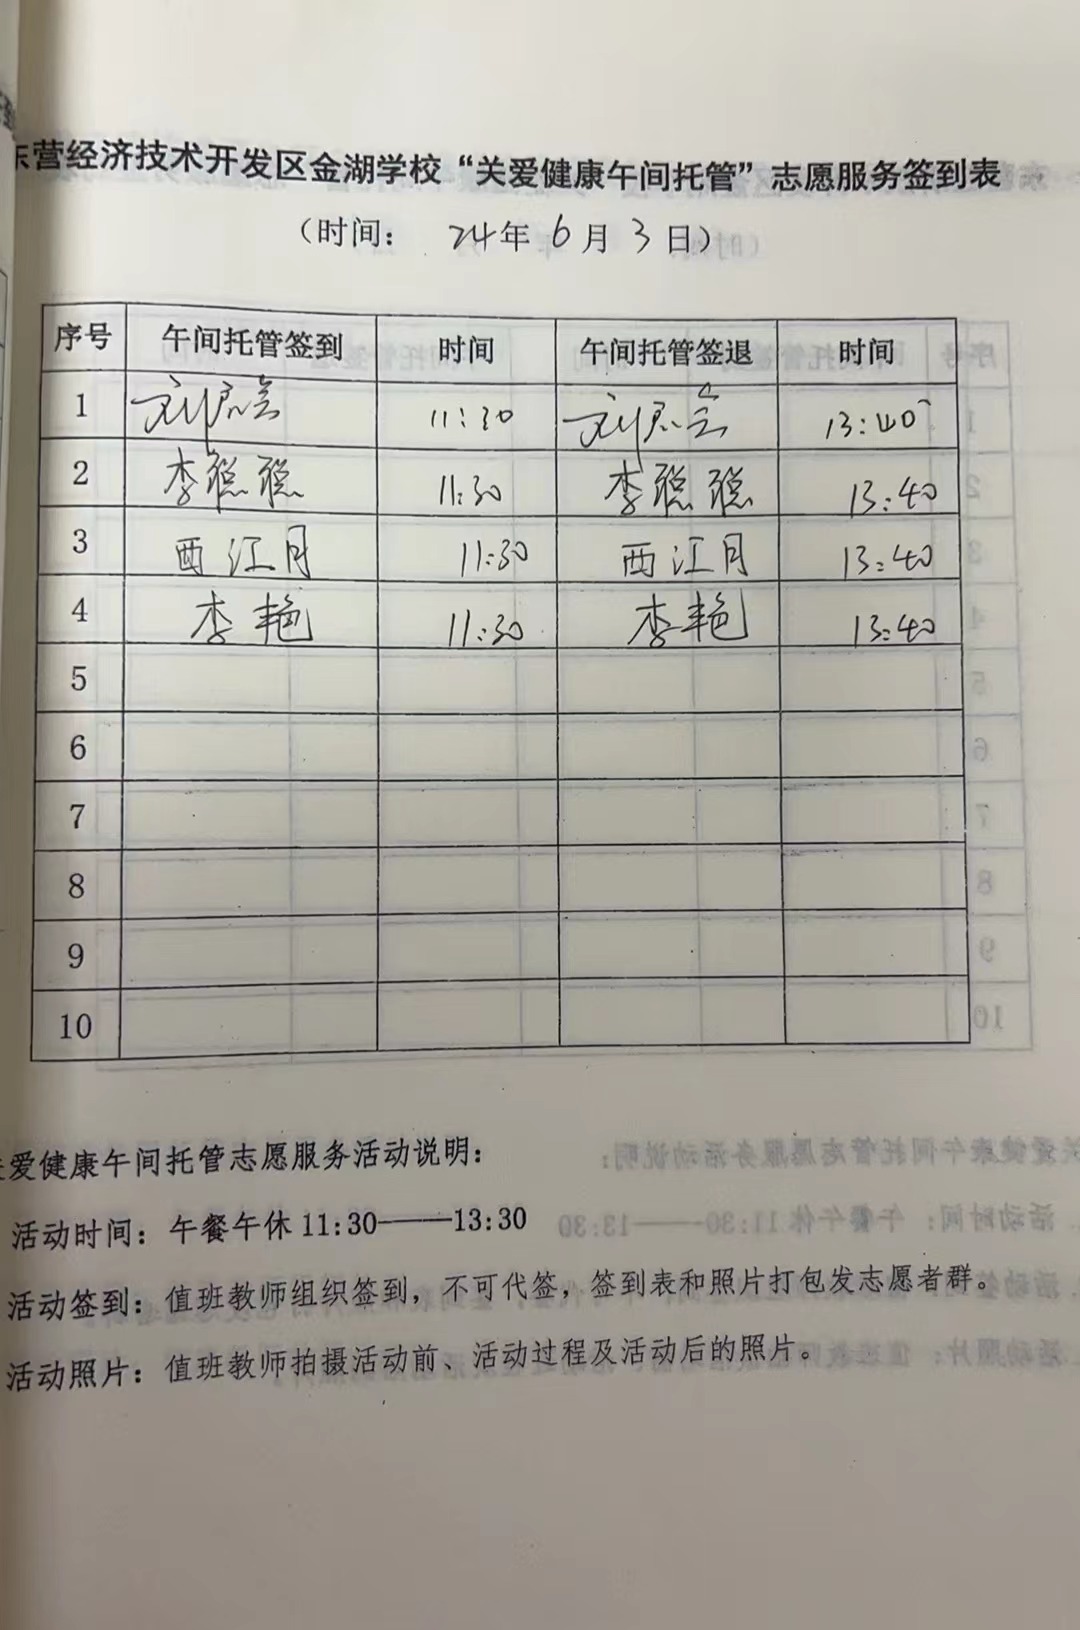 东营经济技术开发区金湖学校“关爱健康午间托管”志愿服务签到表
（时间： 24年 6月 3日）
序号 午间托管签到 时间 午间托管签退 时间
1 11:30 13:40
2 李聪聪 11:30 李聪聪 13:40
3 西江月 11:30 西江月 13:40
4 李艳 11:30 李艳 13:40
5
6
7
8
9
10
关爱健康午间托管志愿服务活动说明：
活动时间：午餐午休11:30——13:30
活动签到：值班教师组织签到，不可代签，签到表和照片打包发志愿者群。
活动照片：值班教师拍摄活动前、活动过程及活动后的照片。